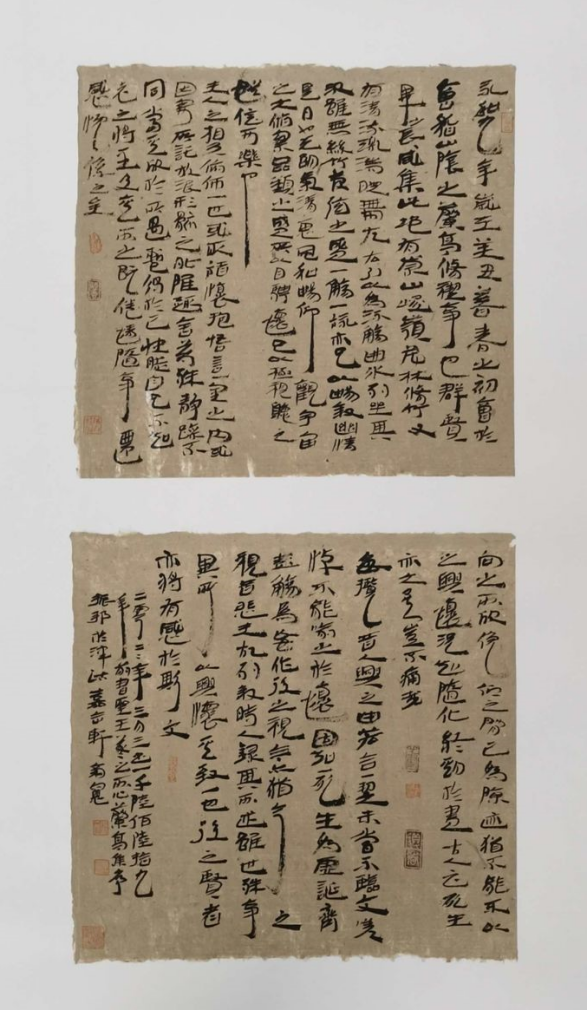 永和九年歲在癸丑暮春之初會於
會稽山陰之蘭亭脩禊事也群賢
畢至咸集此地有崇山峻嶺茂林脩竹又
有清流激湍映帶左右引以為流觴曲水列坐其
次雖無絲竹管弦之盛一觴一詠亦足以暢敘幽情
是日也天朗氣清惠風和暢仰觀宇宙
之大俯察品類之盛所以遊目騁懷足以極視聽之
娛信可樂也
夫人之相與俯仰一世或取諸懷抱悟言一室之內或
因寄所託放浪形骸之外雖趣舍萬殊靜躁不
同當其欣於所遇暫得於己快然自足不知
老之將至及其所之既倦情隨事遷
感慨係之矣
向之所欣俛仰之間已為陳跡猶不能不以
之興懷況短隨化終期於盡古人云死生
亦大矣豈不痛哉
每攬昔人興感之由若合一契未嘗不臨文嗟
悼不能喻之於懷固知一死生為虛誕齊
彭殤為妄作後之視今亦猶今之
視昔悲夫故列敘時人錄其所述雖世殊事
異所以興懷其致一也後之覽者
亦將有感於斯文
二零二二年三月三一千陸佰陸拾九
年書聖王羲之蘭亭集序
振邦於津沽嘉吉軒南窗